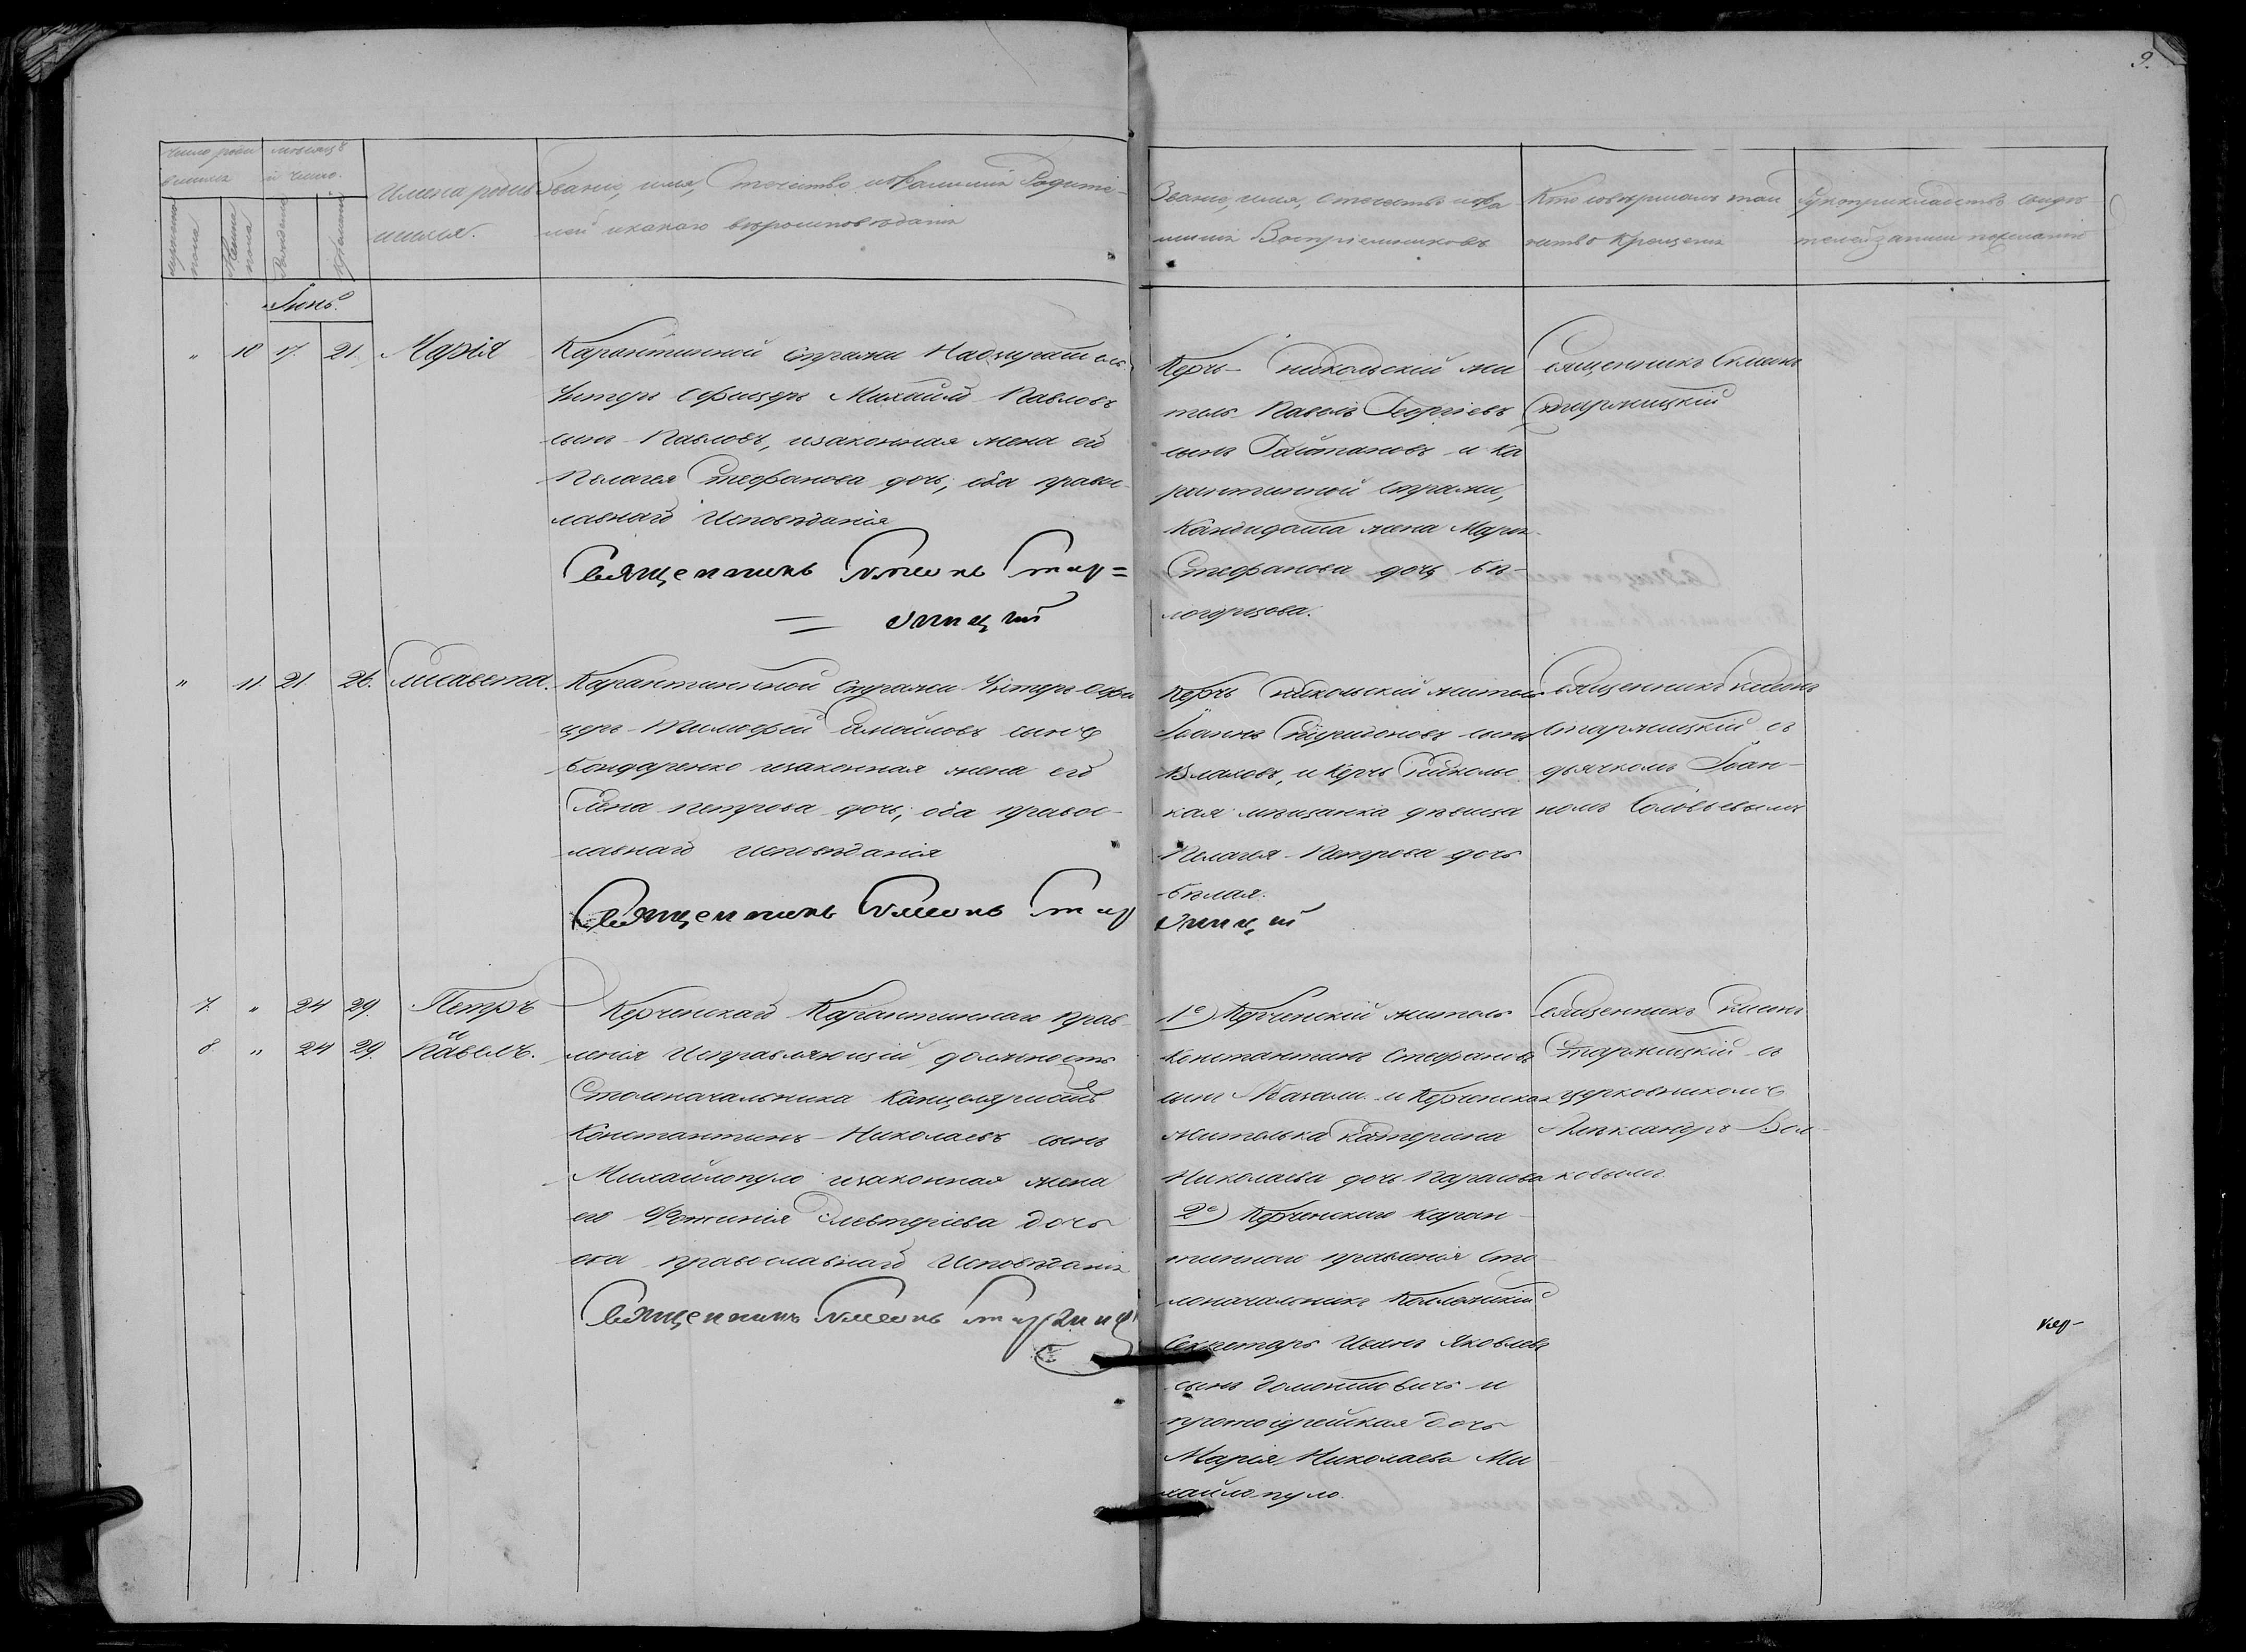 9.
Число родившихся
мѣсяцъ и число.
мужеска пола
женска пола
Рожденія
Крещенія
Имена родившихся.
Званіе, имя, Отечество и Фамилія Родителей и какаго вѣроисповѣданія
Званіе, имя, отечество и фамилія Воспріемниковъ
Кто совершалъ таинство Крещенія
Рукоприкладство свидѣтелей записи по желанію
Іюнь.
" 10 17. 21. Марія
Карантинной стражи Надзиратель
Унтеръ Офицеръ Михаилъ Павловъ
сынъ Павловъ, и законная жена его
Пелагея Стефанова дочь, оба правос-
лавнаго Исповѣданія
Священникъ Симеонъ Стар=
= жицкій
Керчь- Еникольскій жи
тель Павелъ Георгіевъ
сынъ Гайтановъ и ка
рантинной стражи,
Кандидата жена Марія
Стефанова дочь Бѣ-
логорцова.
Священникъ Симеонъ
Старжицкій
" 11. 21. 26. Елисавета.
Карантинной стражи Унтеръ Офи
церъ Тимофей Самойловъ сынъ
Бондаренко и законная жена его
Елена Петрова дочь, оба правос-
лавнаго исповѣданія
Священникъ Симеонъ Стар
жицкій
Керчь Еникольскій житель
Іоаннъ Спиридоновъ сынъ
Влаховъ, и Керчь Еникольс
кая мѣщанка дѣвица
Пелагея Петрова дочь
Бѣлая.
Священникъ Симеонъ
Старжицкій съ
дьячкомъ Іоан-
номъ Соловьевымъ
7. " 24 29. Петръ
и
8. " 24 29. Павелъ.
Керченскаго Карантиннаго Прав-
ленія Исправляющій должность
Столоначальника Канцеляристъ
Константинъ Николаевъ сынъ
Михайлопуло и законная жена
его Фотинія Елевтеріева дочь
оба православнаго Исповѣданія
Священникъ Симеонъ Старжицкій
1е) Керченскій житель
Константинъ Стефановъ
сынъ и Керченская
жителька Катерина
Николаева дочь
2е) Керченскаго Каран-
тиннаго правленія Сто-
лоначальникъ Коллежскій
Секретарь Иванъ Яковлевъ
сынъ Домонтовичъ и
протоіерейская дочь
Марія Николаева Ми
хайлопуло.
Священникъ Симеонъ
Старжицкій съ
церковникомъ
Александръ Вол-
ковымъ.
кер-